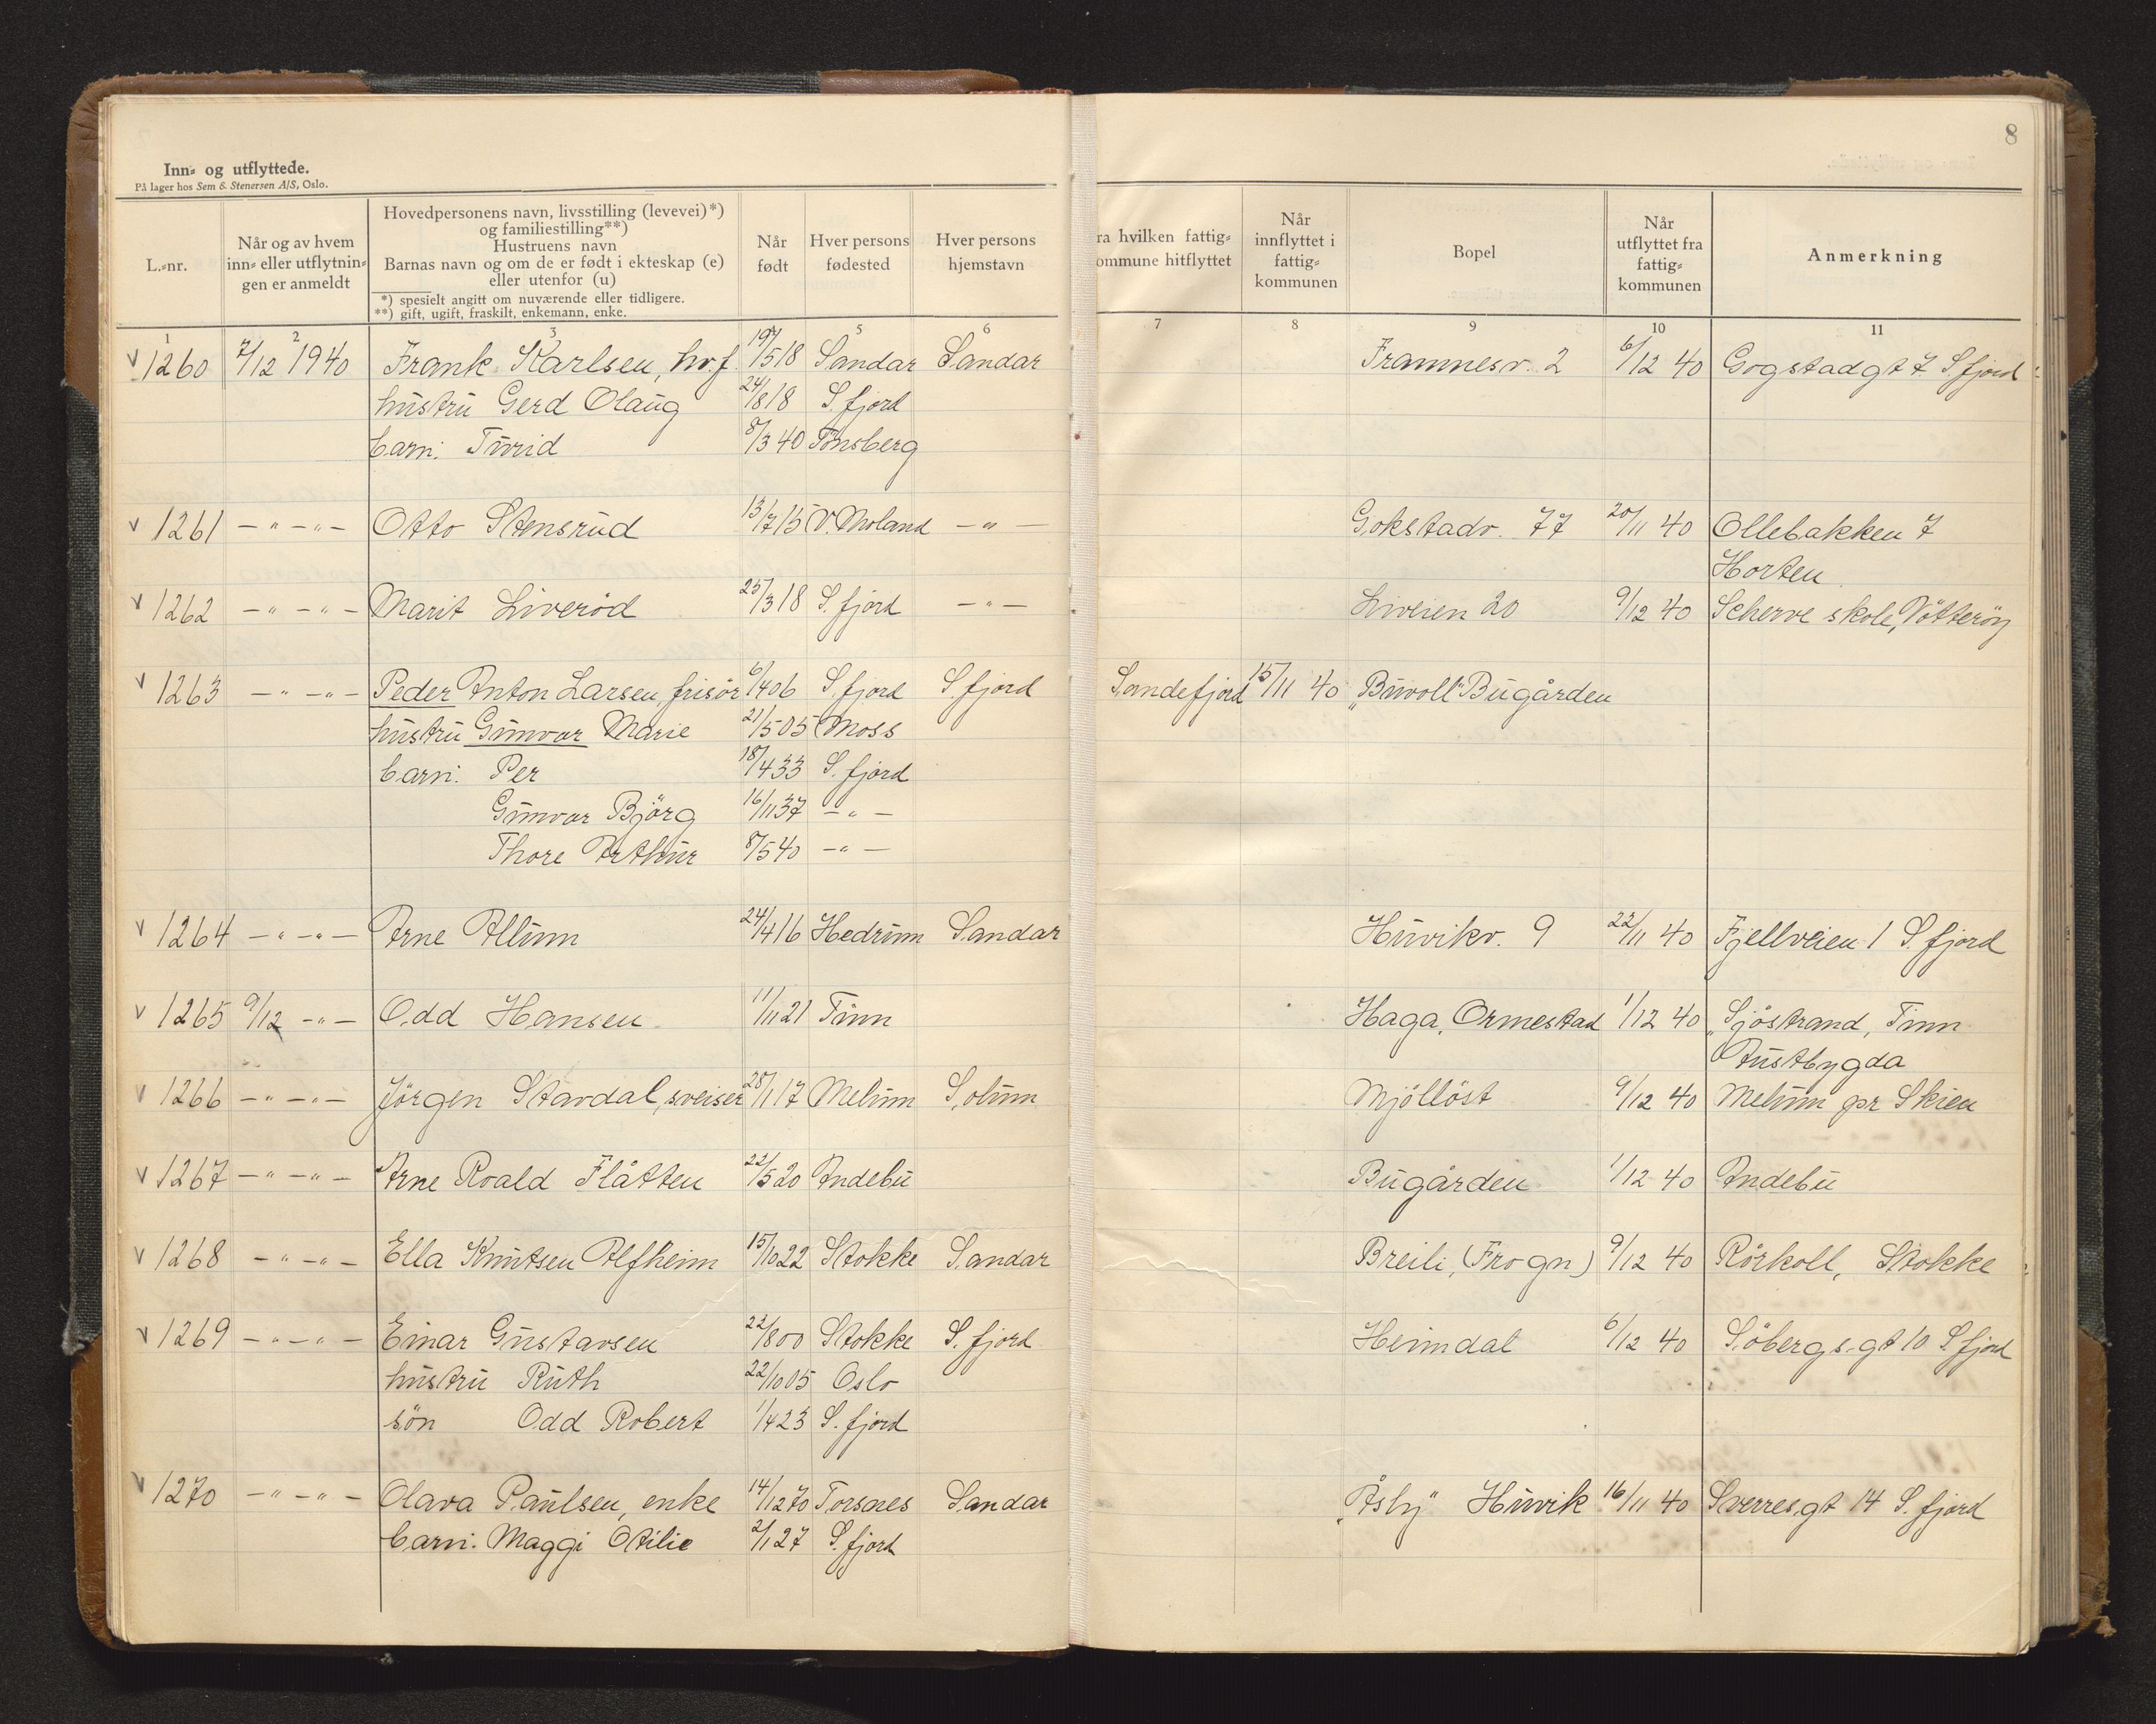 8
Inn- og utflyttede.
På lager hos Sem & Stenersen A/S, Oslo.
L.-nr.
Når og av hvem
inn- eller utflytnin-
gen er anmeldt
Hovedpersonens navn, livsstilling (levevei)*)
og familiestilling**)
Hustruens navn
Barnas navn og om de er født i ekteskap (e)
eller utenfor (u)
*) spesielt angitt om nuværende eller tidligere.
**) gift, ugift, fraskilt, enkemann, enke.
Når
født
Hver persons
fødested
Hver persons
hjemstavn
ra hvilken fattig-
ommune hitflyttet
Når
innflyttet i
fattig-
kommunen
Bopel
Når
utflyttet fra
fattig-
kommunen
Anmerkning
1 2 3 5 6 7 8 9 10 11
v 1260 7/12 1940 Frank Karlsen, hv.f. 19/518 Sandar Sandar Framnesv. 2 6/12 40 Gogstadgt 7 S.fjord
hustru Gerd Olaug 24/818 S.fjord
barn: Turid 8/3 40 Tönsberg
v 1261 -"-"- Otto Stensrud 13/715 V. Moland -"- Gokstadv. 77 20/11 40 Ollebakken 7
Horten
v 1262 -"-"- Marit Liveröd 25/318 S.fjord -"- Liveien 20 9/12 40 Scherve skole, Nötteröy
v 1263 -"-"- Peder Anton Larsen, frisör 6/406 S.fjord S.fjord Sandefjord 15/11 40 "Buvoll" Bugården
hustru Gunvor Marie 21/505 Moss
barn: Per 18/433 S.fjord
Gunvor Björg 16/1137 -"-
Thore Arthur 8/540 -"-
v 1264 -"-"- Arne Allum 24/416 Hedrum Sandar Huvikv. 9 22/11 40 Fjellveien 1 S.fjord
v 1265 9/12 -"- Odd Hansen 11/1121 Tinn Haga, Ormestad 1/12 40 "Sjöstrand, Tinn
Austbygda
v 1266 -"-"- Jörgen Stavdal, sveiser 28/117 Melum Solum Mjöllöst 9/12 40 Melum pr Skien
v 1267 -"-"- Arne Roald Flåtten 22/520 Andebu Bugården 1/12 40 Andebu
v 1268 -"-"- Ella Knutsen Alfheim 15/1022 Stokke Sandar Breili, (Frogn) 9/12 40 Rörkoll, Stokke
v 1269 -"-"- Einar Gustavsen 22/800 Stokke S.fjord Heimdal 6/12 40 Söbergs.gt 10 S.fjord
hustru Ruth 22/1005 Oslo
sön Odd Robert 1/423 S.fjord
v 1270 -"-"- Olava Paulsen, enke 14/1270 Torsnes Sandar "Åsly" Huvik 16/11 40 Sverresgt 14 S.fjord
barn: Maggi Otilie 2/127 S.fjord